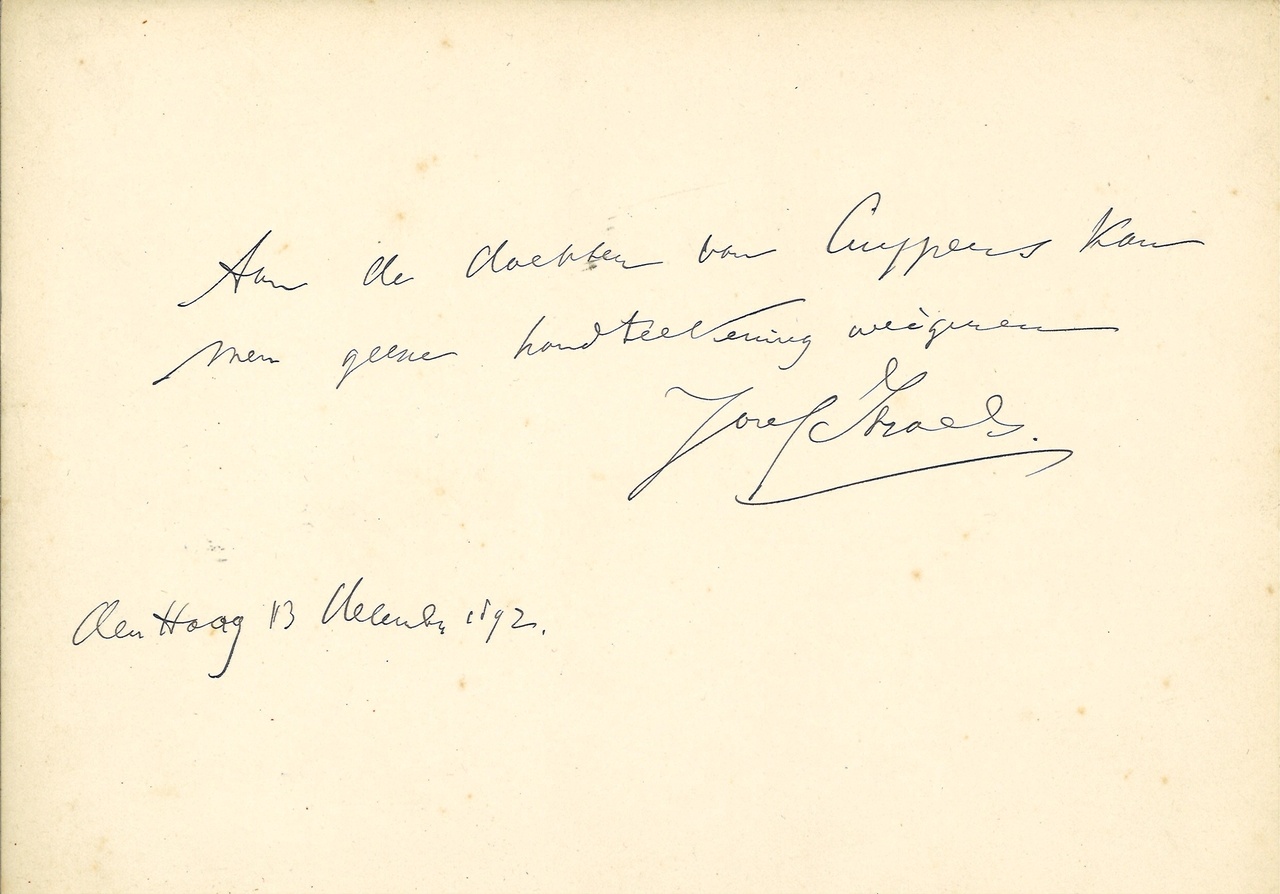 Aan de dochter van Cuypers kan
men geene handteekening weigeren
Jozef Israels.
den Haag 13 Decembr 1892.